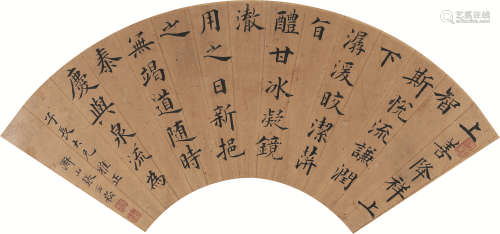 上善降祥上
智斯悅流謙潤
下
潺湲皎潔萍
旨
醴甘冰凝鏡
澈
用之日新挹
之
無竭道隨時
泰
慶與泉流為
子長大兄雅正
山張